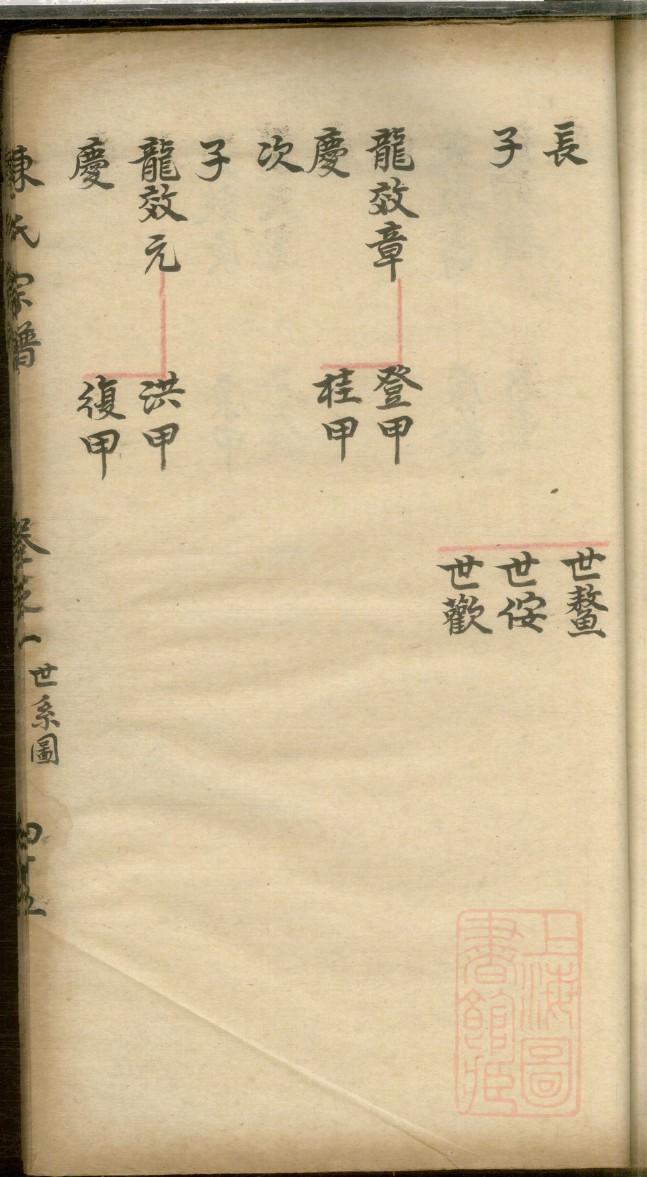 長
世鰲
子
世侒
世歡
龍效章
登甲
慶
桂甲
次
子
龍效元
洪甲
慶
復甲
陳氏宗譜
世系圖
上海圖
書館藏